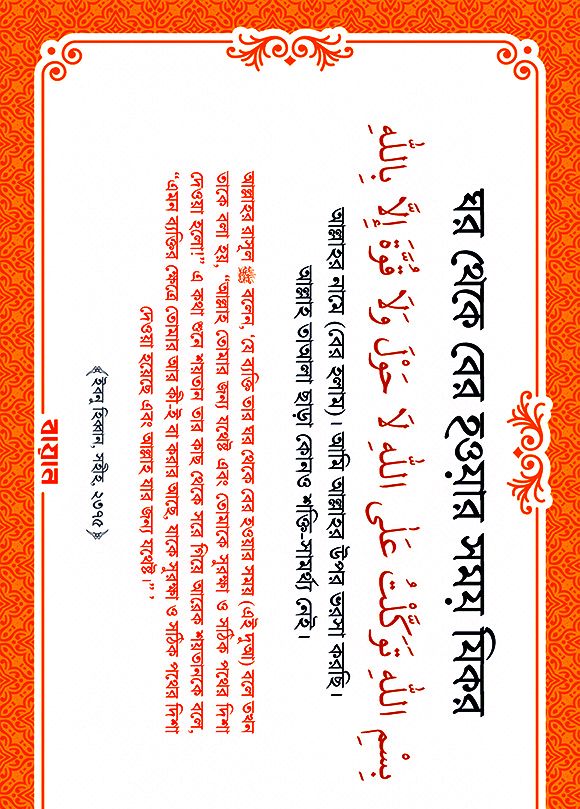 ঘর থেকে বের হওয়ার সময় যিকর
بِسْمِ اللّٰهِ تَوَكَّلْتُ عَلَى اللّٰهِ لَا حَوْلَ وَلَا قُوَّةَ إِلَّا بِاللّٰهِ
আল্লাহর নামে (বের হলাম)। আমি আল্লাহর উপর ভরসা করছি।
আল্লাহ তাআলা ছাড়া কোনও শক্তি-সামর্থ্য নেই।
আল্লাহর রাসূল ﷺ বলেন, ‘যে ব্যক্তি তার ঘর থেকে বের হওয়ার সময় (এই দুআ) বলে তখন
তাকে বলা হয়, “আল্লাহ তোমার জন্য যথেষ্ট এবং তোমাকে সুরক্ষা ও সঠিক পথের দিশা
দেওয়া হলো!” এ কথা শুনে শয়তান তার কাছ থেকে সরে গিয়ে আরেক শয়তানকে বলে,
“এমন ব্যক্তির ক্ষেত্রে তোমার আর কীই বা করার আছে, যাকে সুরক্ষা ও সঠিক পথের দিশা
দেওয়া হয়েছে এবং আল্লাহ যার জন্য যথেষ্ট।” ’
﴾ ইবনু হিব্বান, সহীহ ২৩৭৫ ﴿
বায়ান